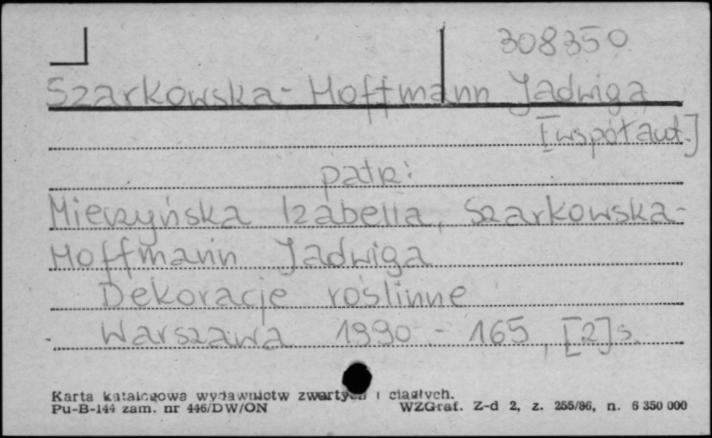 308350
Szarkowska-Hoffmann Jadwiga
[współaut.]
patrz:
Mierzyńska Izabella, Szarkowska-
Hoffmann Jadwiga
Dekoracje roślinne
Warszawa 1990 - 165, [2] s.
Karta katalogowa wydawnictw zwartych i ciągłych.
Pu-B-144 zam. nr 446/DW/ON WZGraf. Z-d 2, z. 255/86, n. 6 350 000